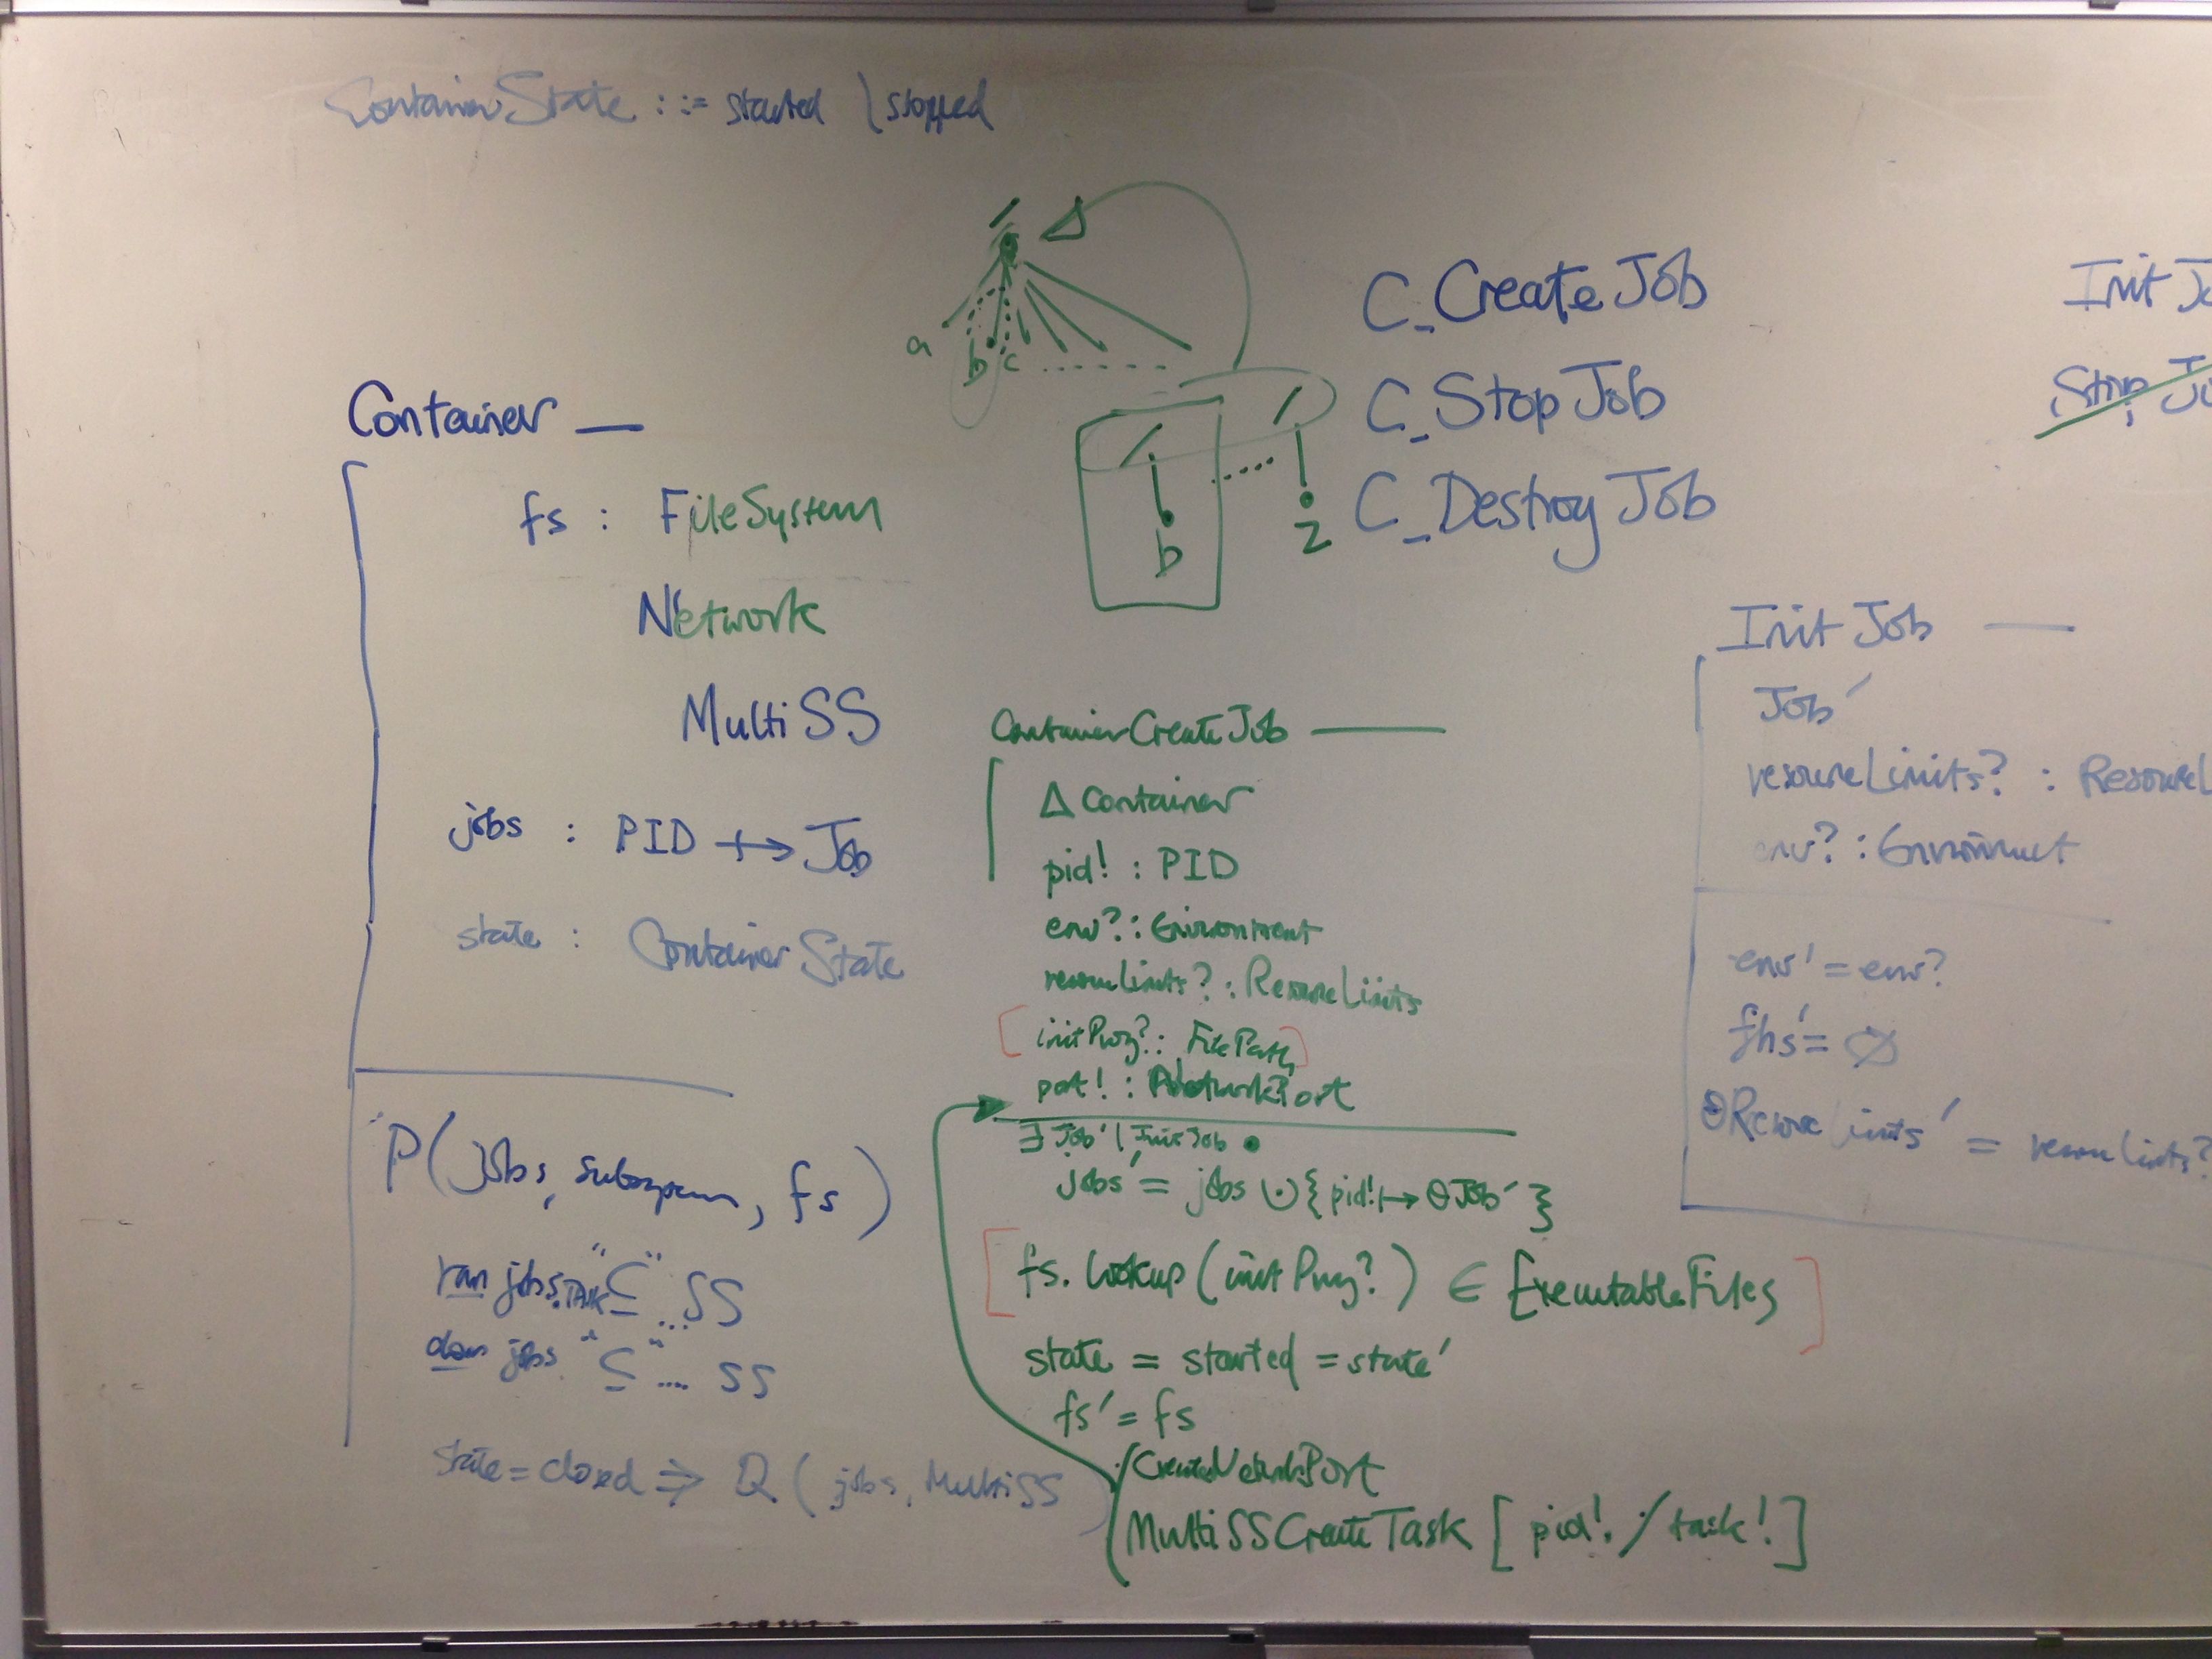 ContainerState ::= started | stopped
/ Δ
a b c ........
/ /
b z
C_CreateJob
C_StopJob
C_DestroyJob
Init Jo
Stop Jo
Container —
fs : FileSystem
Network
MultiSS
jobs : PID ⇸ Job
state : ContainerState
P(jobs, , fs)
ran jobs.TASK "⊆" ... SS
dom jobs "⊆" .... SS
state = closed ⇒ Q ( jobs, MultiSS )
ContainerCreateJob —
Δ Container
pid! : PID
env? : Environment
resourceLimits? : ResourceLimits
[ initProg? : FilePath ]
port! : NetworkPort
∃ Job' | InitJob •
jobs' = jobs ∪ { pid! ↦ θJob' }
[ fs.lookup (initProg?) ∈ ExecutableFiles ]
state = started = state'
fs' = fs
CreateNetworkPort
MultiSSCreateTask [ pid! / task! ]
InitJob —
Job'
resourceLimits? : ResourceL
env? : Environment
env' = env?
fhs' = ∅
θResourceLimits' = resourceLimits?